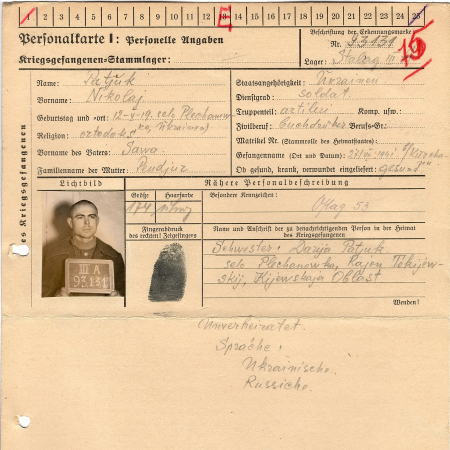 1 2 3 4 5 6 7 8 9 10 11 12 13 14 15 16 17 18 19 20 21 22 23 24 25
Personalkarte I: Personelle Angaben
Kriegsgefangenen-Stammlager:
Beschriftung der Erkennungsmarke
Nr. 93131
Lager: Stalag III
Des Kriegsgefangenen
Name: Patjuk
Vorname: Nikolaj
Geburtstag und -ort: 12-V-19. selo Plechanow-
ka, Ukrainen)
Religion: ortodoks
Vorname des Vaters: Sawa
Familienname der Mutter:
Staatsangehörigkeit: Ukrainen
Dienstgrad: soldat
Truppenteil: artilen Komp. usw.:
Zivilberuf: Berufs-Gr.:
Matrikel Nr. (Stammrolle des Heimatstaates):
Gefangennahme (Ort und Datum):
Ob gesund, krank, verwundet eingeliefert: gesund
Lichtbild
Größe
Haarfarbe
174
Fingerabdruck
des rechten! Zeigefingers
Nähere Personalbeschreibung
Besondere Kennzeichen:
Oflag 53
Name und Anschrift der zu benachrichtigenden Person in der Heimat
des Kriegsgefangenen
Schwester: Darija Patjuk
selo Plechanowka, Rajon Tetijew-
skij, Kijewskaja Oblast
Wenden!
III A
93131
Unverheiratet.
Sprache:
Ukrainische.
Russiche.